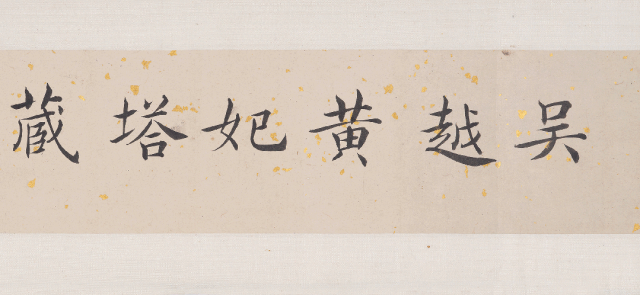 吴越黄妃塔蔵